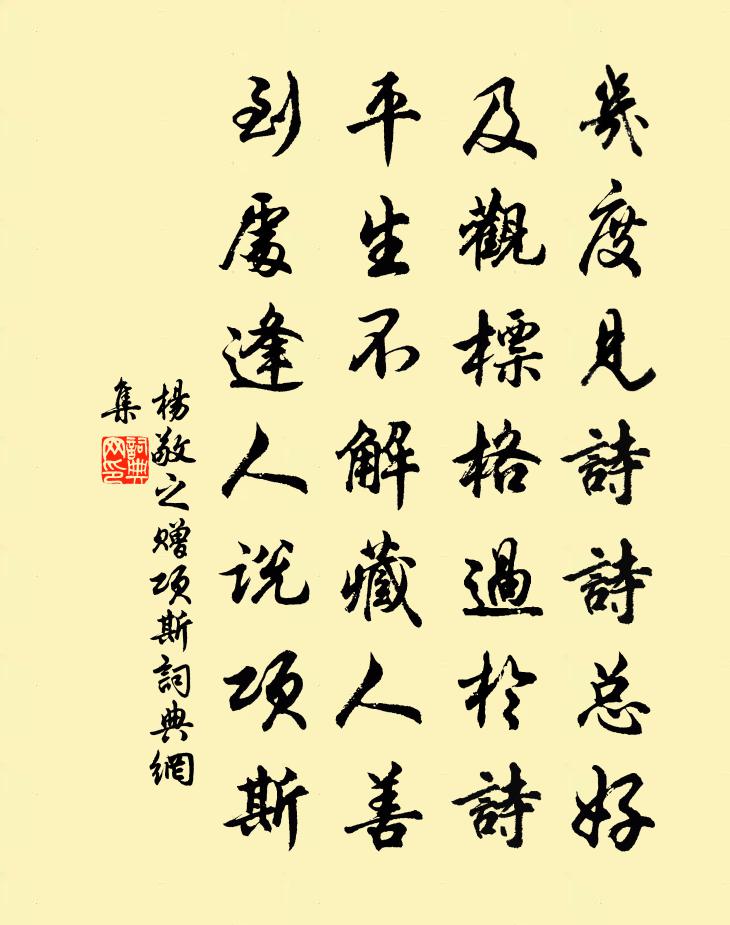 幾度見詩詩总好
及觀標格過於詩
平生不解藏人善
到處逢人说项斯
楊敬之赠项斯詞典網
集
詞典
网印